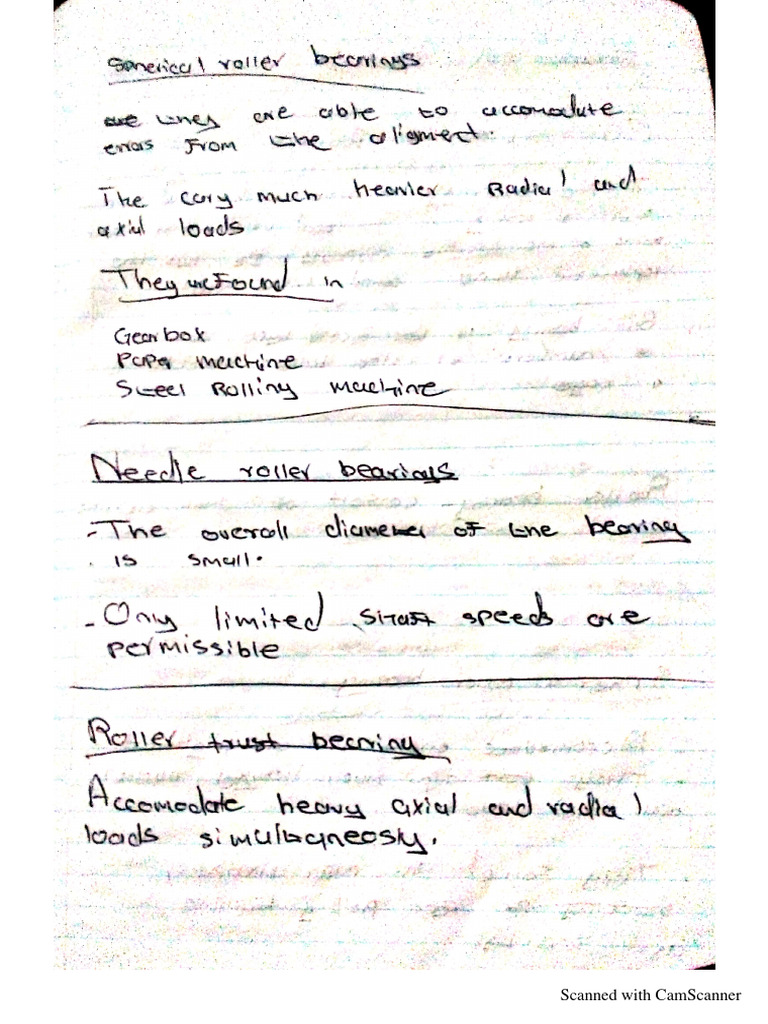 Spherical roller bearings
they are able to accomodate
errors from the aligment.
The cary much heavier Radial and
axial loads
They are Found in
Gearbox
Paper machine
Steel Rolling machine
Needle roller bearings
- The overall diameter of the bearing
is small.
- Only limited shaft speeds are
permissible
Roller trust bearing
Accomodate heavy axial and radial
loads simultaneosly.
Scanned with CamScanner